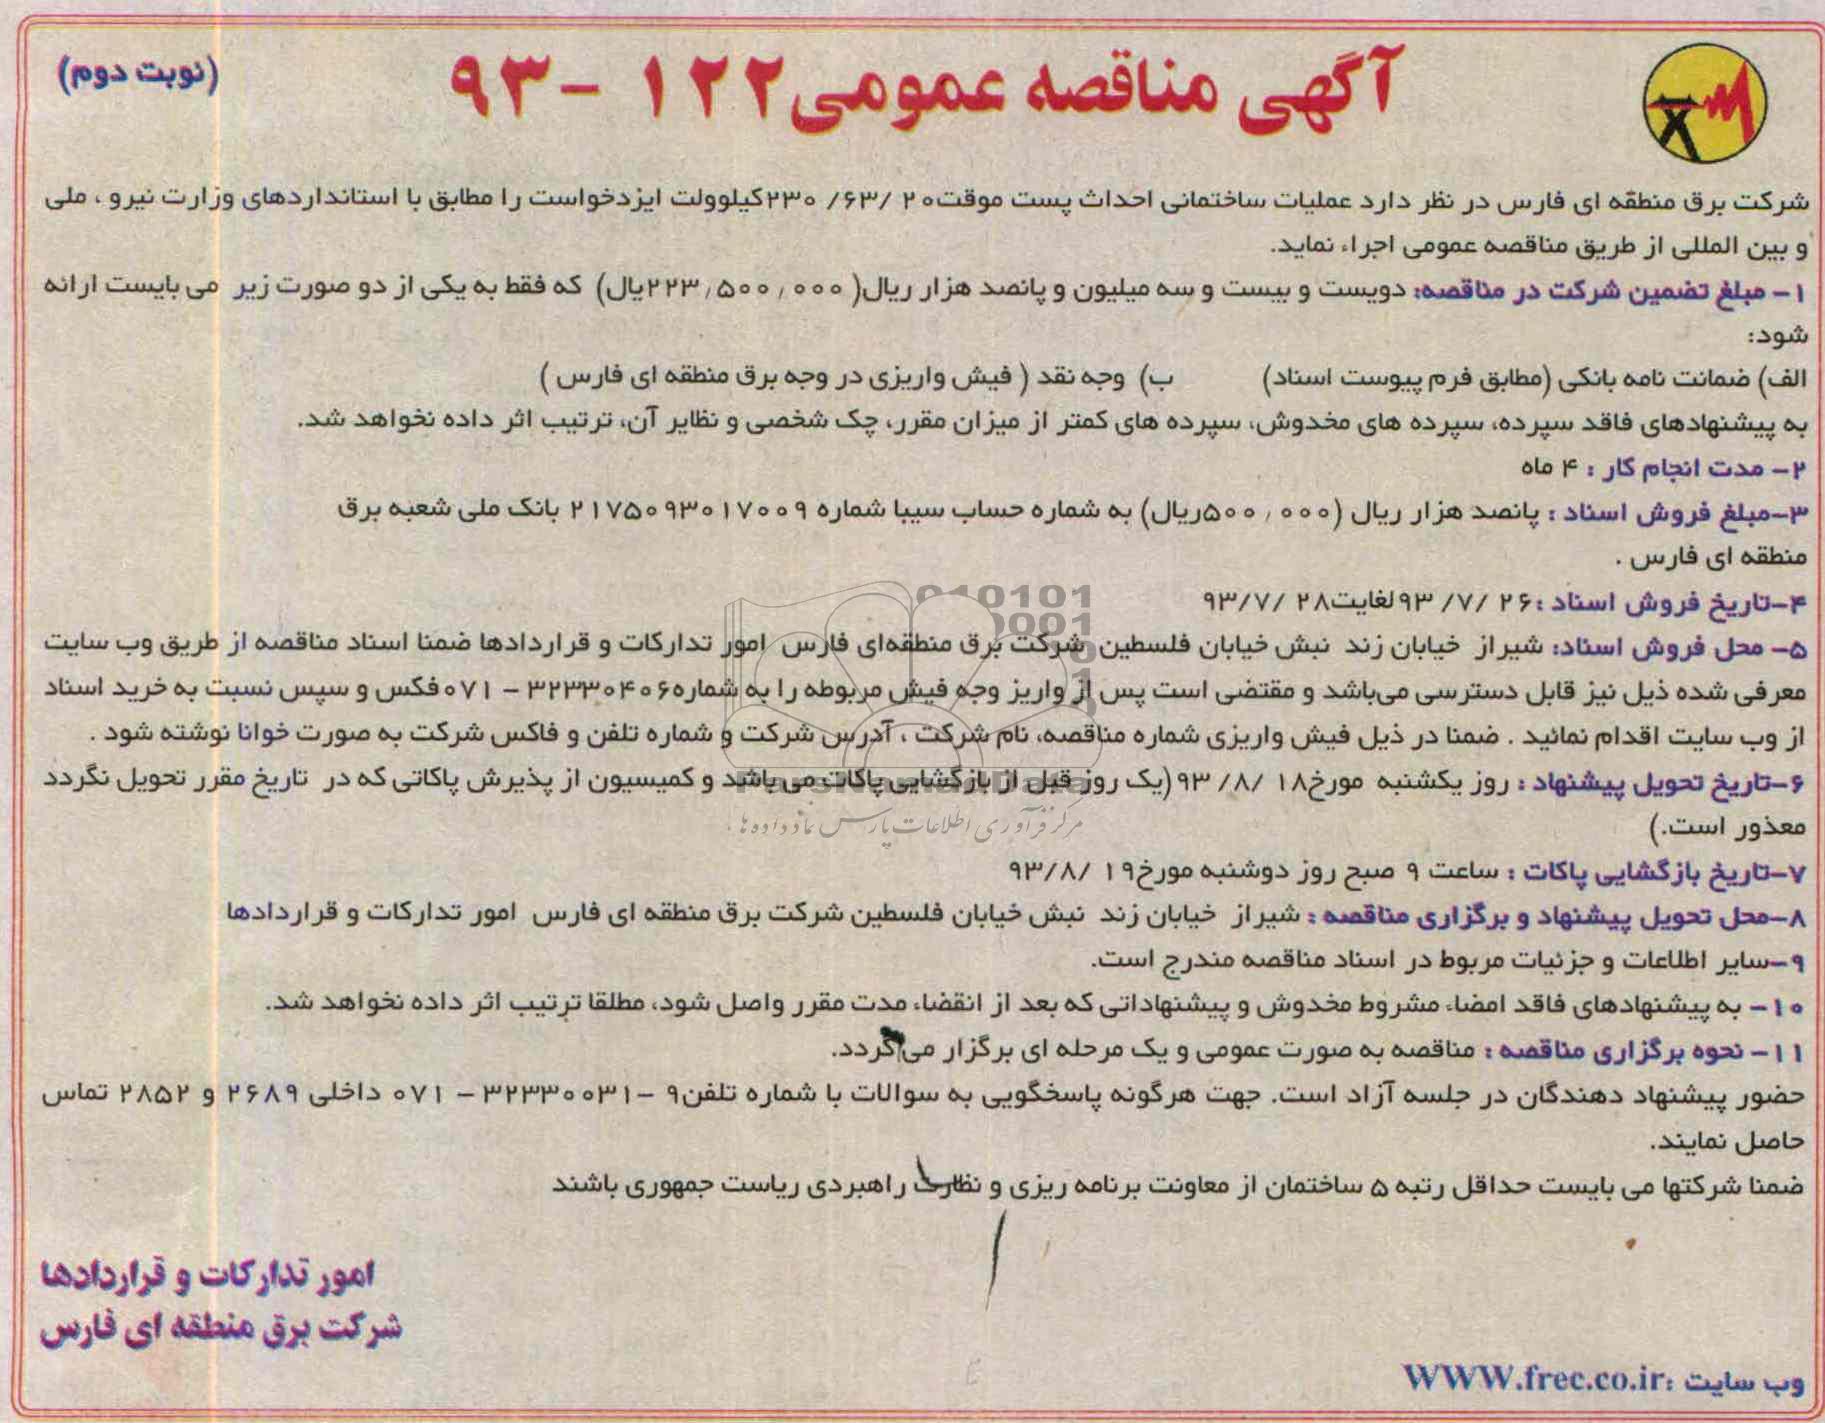 آگهی مناقصه عمومی ۱۲۲ - ۹۳
(نوبت دوم)
شرکت برق منطقه ای فارس در نظر دارد عملیات ساختمانی احداث پست موقت ۲۰ /۶۳/ ۲۳۰ کیلوولت ایزدخواست را مطابق با استانداردهای وزارت نیرو ، ملی
و بین المللی از طریق مناقصه عمومی اجراء نماید.
۱- مبلغ تضمین شرکت در مناقصه: دویست و بیست و سه میلیون و پانصد هزار ریال( ۲۲۳٫۵۰۰٫۰۰۰یال) که فقط به یکی از دو صورت زیر می بایست ارائه
شود:
الف) ضمانت نامه بانکی (مطابق فرم پیوست اسناد) ب) وجه نقد ( فیش واریزی در وجه برق منطقه ای فارس )
به پیشنهادهای فاقد سپرده، سپرده های مخدوش، سپرده های کمتر از میزان مقرر، چک شخصی و نظایر آن، ترتیب اثر داده نخواهد شد.
۲- مدت انجام کار : ۴ ماه
۳-مبلغ فروش اسناد : پانصد هزار ریال (۵۰۰٫۰۰۰ریال) به شماره حساب سیبا شماره ۲۱۷۵۰۹۳۰۱۷۰۰۹ بانک ملی شعبه برق
منطقه ای فارس .
۴-تاریخ فروش اسناد :۲۶ /۷/ ۹۳ لغایت ۲۸ /۹۳/۷
۵- محل فروش اسناد: شیراز خیابان زند نبش خیابان فلسطین شرکت برق منطقه‌ای فارس امور تدارکات و قراردادها ضمنا اسناد مناقصه از طریق وب سایت
معرفی شده ذیل نیز قابل دسترسی می‌باشد و مقتضی است پس از واریز وجه فیش مربوطه را به شماره۳۲۳۳۰۴۰۶ - ۰۷۱فکس و سپس نسبت به خرید اسناد
از وب سایت اقدام نمائید . ضمنا در ذیل فیش واریزی شماره مناقصه، نام شرکت ، آدرس شرکت و شماره تلفن و فاکس شرکت به صورت خوانا نوشته شود .
۶-تاریخ تحویل پیشنهاد : روز یکشنبه مورخ۱۸ /۸/ ۹۳ (یک روز قبل از بازگشایی پاکات می باشد و کمیسیون از پذیرش پاکاتی که در تاریخ مقرر تحویل نگردد
معذور است.)
۷-تاریخ بازگشایی پاکات : ساعت ۹ صبح روز دوشنبه مورخ۱۹ /۹۳/۸
۸-محل تحویل پیشنهاد و برگزاری مناقصه : شیراز خیابان زند نبش خیابان فلسطین شرکت برق منطقه ای فارس امور تدارکات و قراردادها
۹-سایر اطلاعات و جزئیات مربوط در اسناد مناقصه مندرج است.
۱۰- به پیشنهادهای فاقد امضاء مشروط مخدوش و پیشنهاداتی که بعد از انقضاء مدت مقرر واصل شود، مطلقا ترتیب اثر داده نخواهد شد.
۱۱- نحوه برگزاری مناقصه : مناقصه به صورت عمومی و یک مرحله ای برگزار می گردد.
حضور پیشنهاد دهندگان در جلسه آزاد است. جهت هرگونه پاسخگویی به سوالات با شماره تلفن۹ -۳۲۳۳۰۰۳۱ - ۰۷۱ داخلی ۲۶۸۹ و ۲۸۵۲ تماس
حاصل نمایند.
ضمنا شرکتها می بایست حداقل رتبه ۵ ساختمان از معاونت برنامه ریزی و نظارت راهبردی ریاست جمهوری باشند
امور تدارکات و قراردادها
شرکت برق منطقه ای فارس
وب سایت :WWW.frec.co.ir